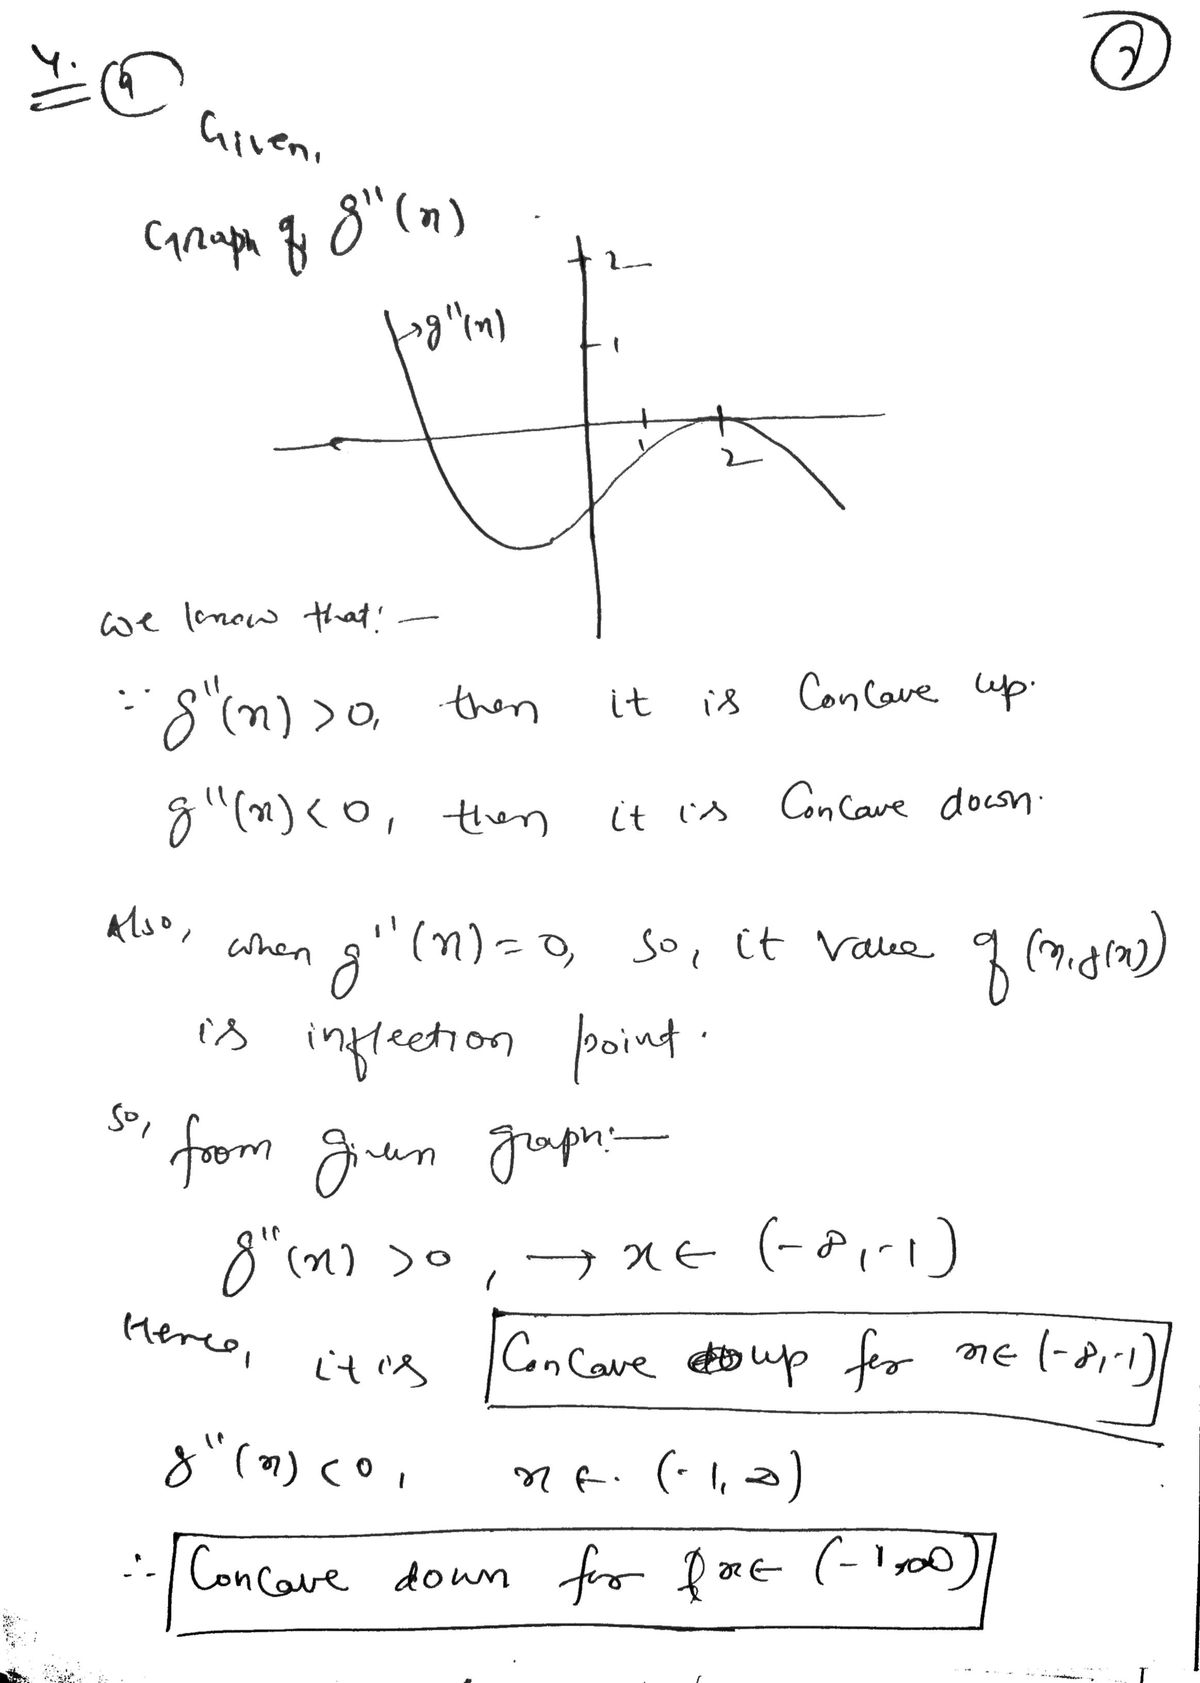 4. (a)
(2)
Given,
Graph of g''(x)
2
→g''(x)
1
1
2
we know that:-
∵ g''(x) > 0, then it is Concave up.
g''(x) < 0, then it is Concave down.
Also, when g''(x) = 0, so, it value of (x, g(x))
is inflection point.
so, from given graph:-
g''(x) > 0, → x ∈ (-∞, -1)
Hence, it is Concave up for x ∈ (-∞, -1)
g''(x) < 0, x ∈. (-1, ∞)
∴ Concave down for x ∈ (-1, ∞)